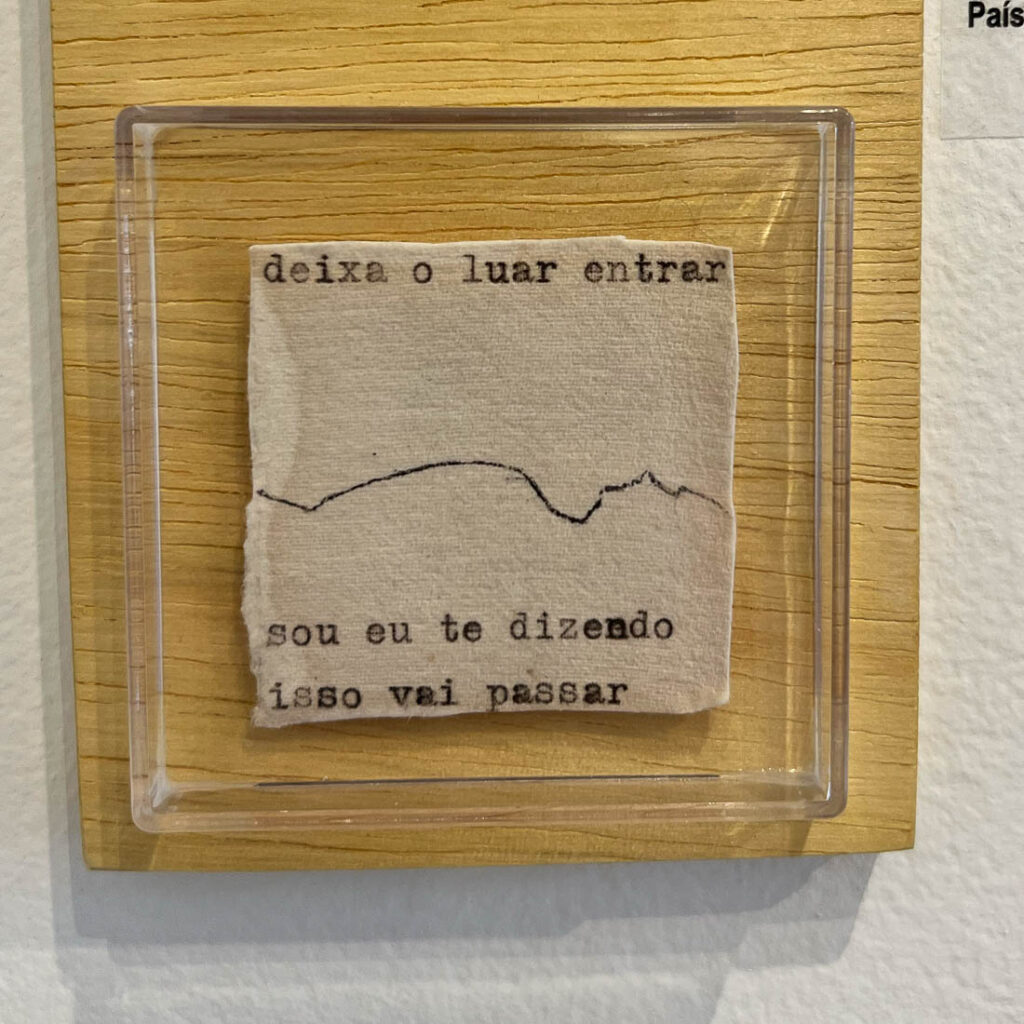 País
deixa o luar entrar
sou eu te dizendo
isso vai passar